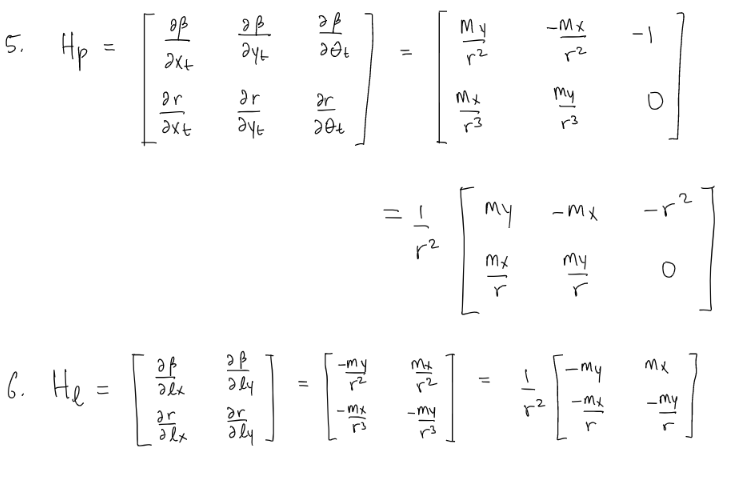 5. H_p = [ ∂β/∂x_t ∂β/∂y_t ∂β/∂θ_t ; ∂r/∂x_t ∂r/∂y_t ∂r/∂θ_t ] = [ My/r² -Mx/r² -1 ; Mx/r³ My/r³ 0 ]
= 1/r² [ my -mx -r² ; mx/r my/r 0 ]
6. H_ℓ = [ ∂β/∂ℓx ∂β/∂ℓy ; ∂r/∂ℓx ∂r/∂ℓy ] = [ -my/r² mx/r² ; -mx/r³ -my/r³ ] = 1/r² [ -my mx ; -mx/r -my/r ]